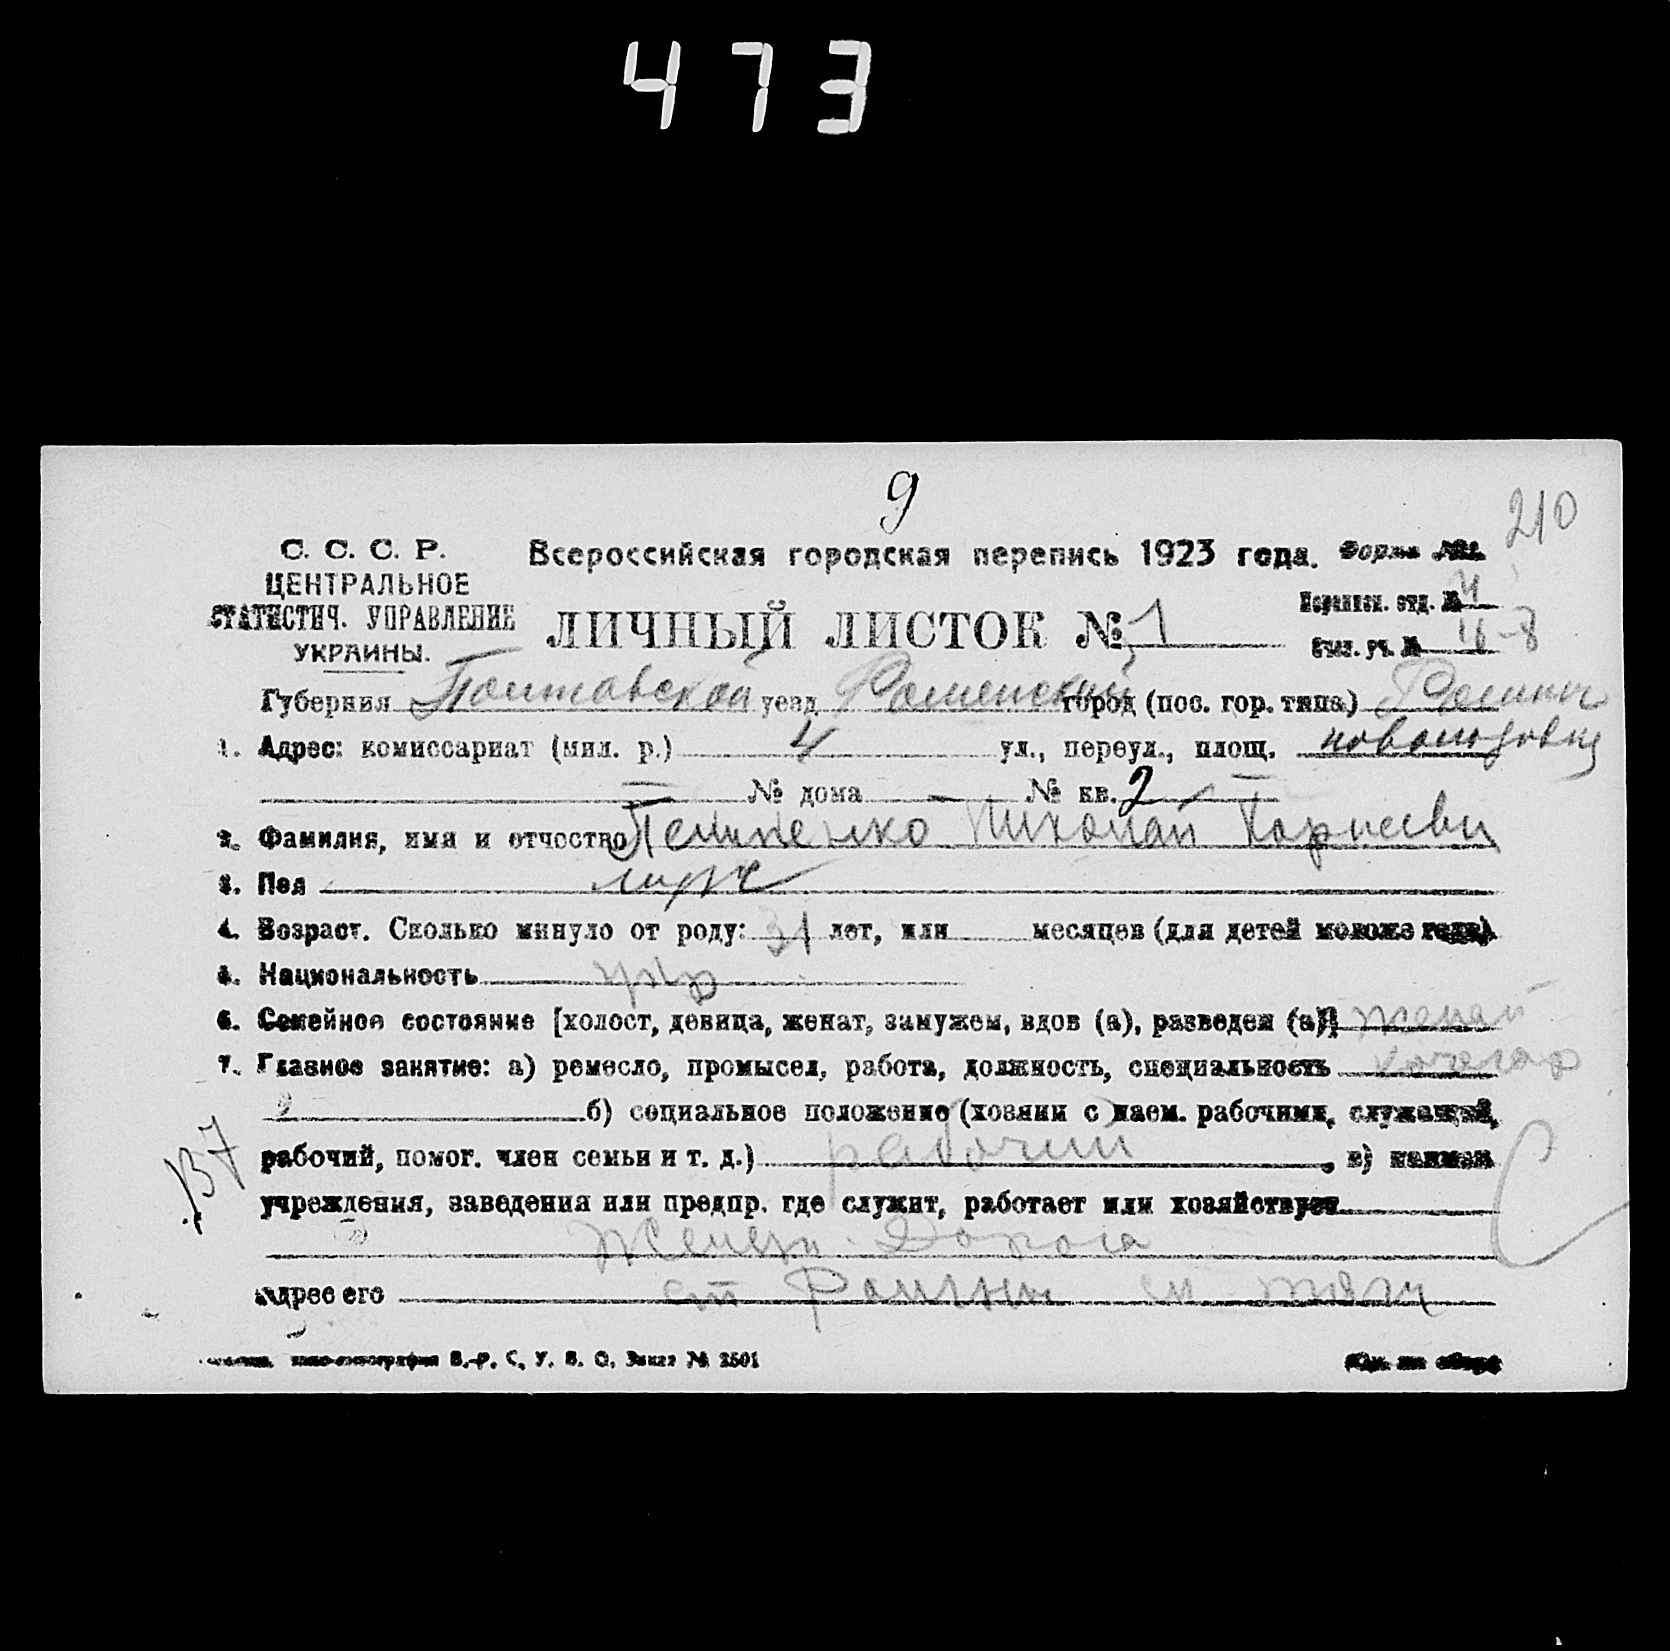 473
9
210
С. С. С. Р.
ЦЕНТРАЛЬНОЕ
СТАТИСТИЧ. УПРАВЛЕНИЕ
УКРАИНЫ.
Всероссийская городская перепись 1923 года. Форма
ЛИЧНЫЙ ЛИСТОК № 1
отд. № 4
уч. №
Губерния Полтавской уезд Роменский город (пос. гор. типа) Ромны
1. Адрес: комиссариат (мил. р.) 4 ул., переул., площ.
— № дома — № кв. 2
2. Фамилия, имя и отчество Николай
3. Пол муж
4. Возраст. Сколько минуло от роду: 31 лет, или месяцев (для детей моложе года).
5. Национальность укр
6. Семейное состояние [холост, девица, женат, замужем, вдов (а), разведен (а)] женат
7. Главное занятие: а) ремесло, промысел, работа, должность, специальность кочегар
б) социальное положение (хозяин с наем. рабочими, служащий,
рабочий, помог. член семьи и т. д.) рабочий, в) наимен.
В7
учреждения, заведения или предпр. где служит, работает или хозяйствует
Желез. Дорога
Адрес его ст Ромны тяги
В.-Р. С. У. В. О. Заказ № 2501